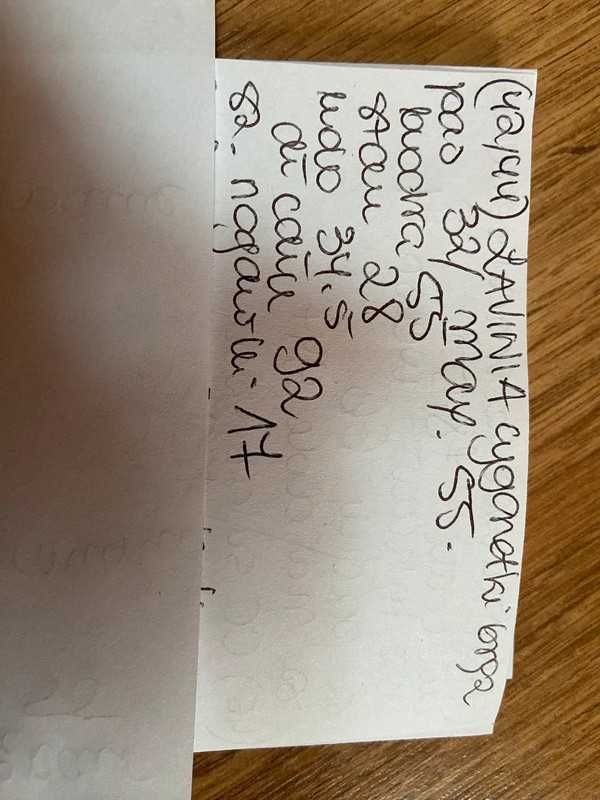 (42/44) LAVINIA cyganetki brąz
pas 32/ max. 55.
biodra 55
stan 28
udo 34.5
dł całk 92
sz. nogawki 17